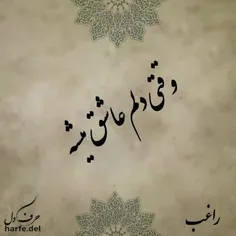 وقتی دلم عاشق میشه
راغب
حرف دل
harfe.del